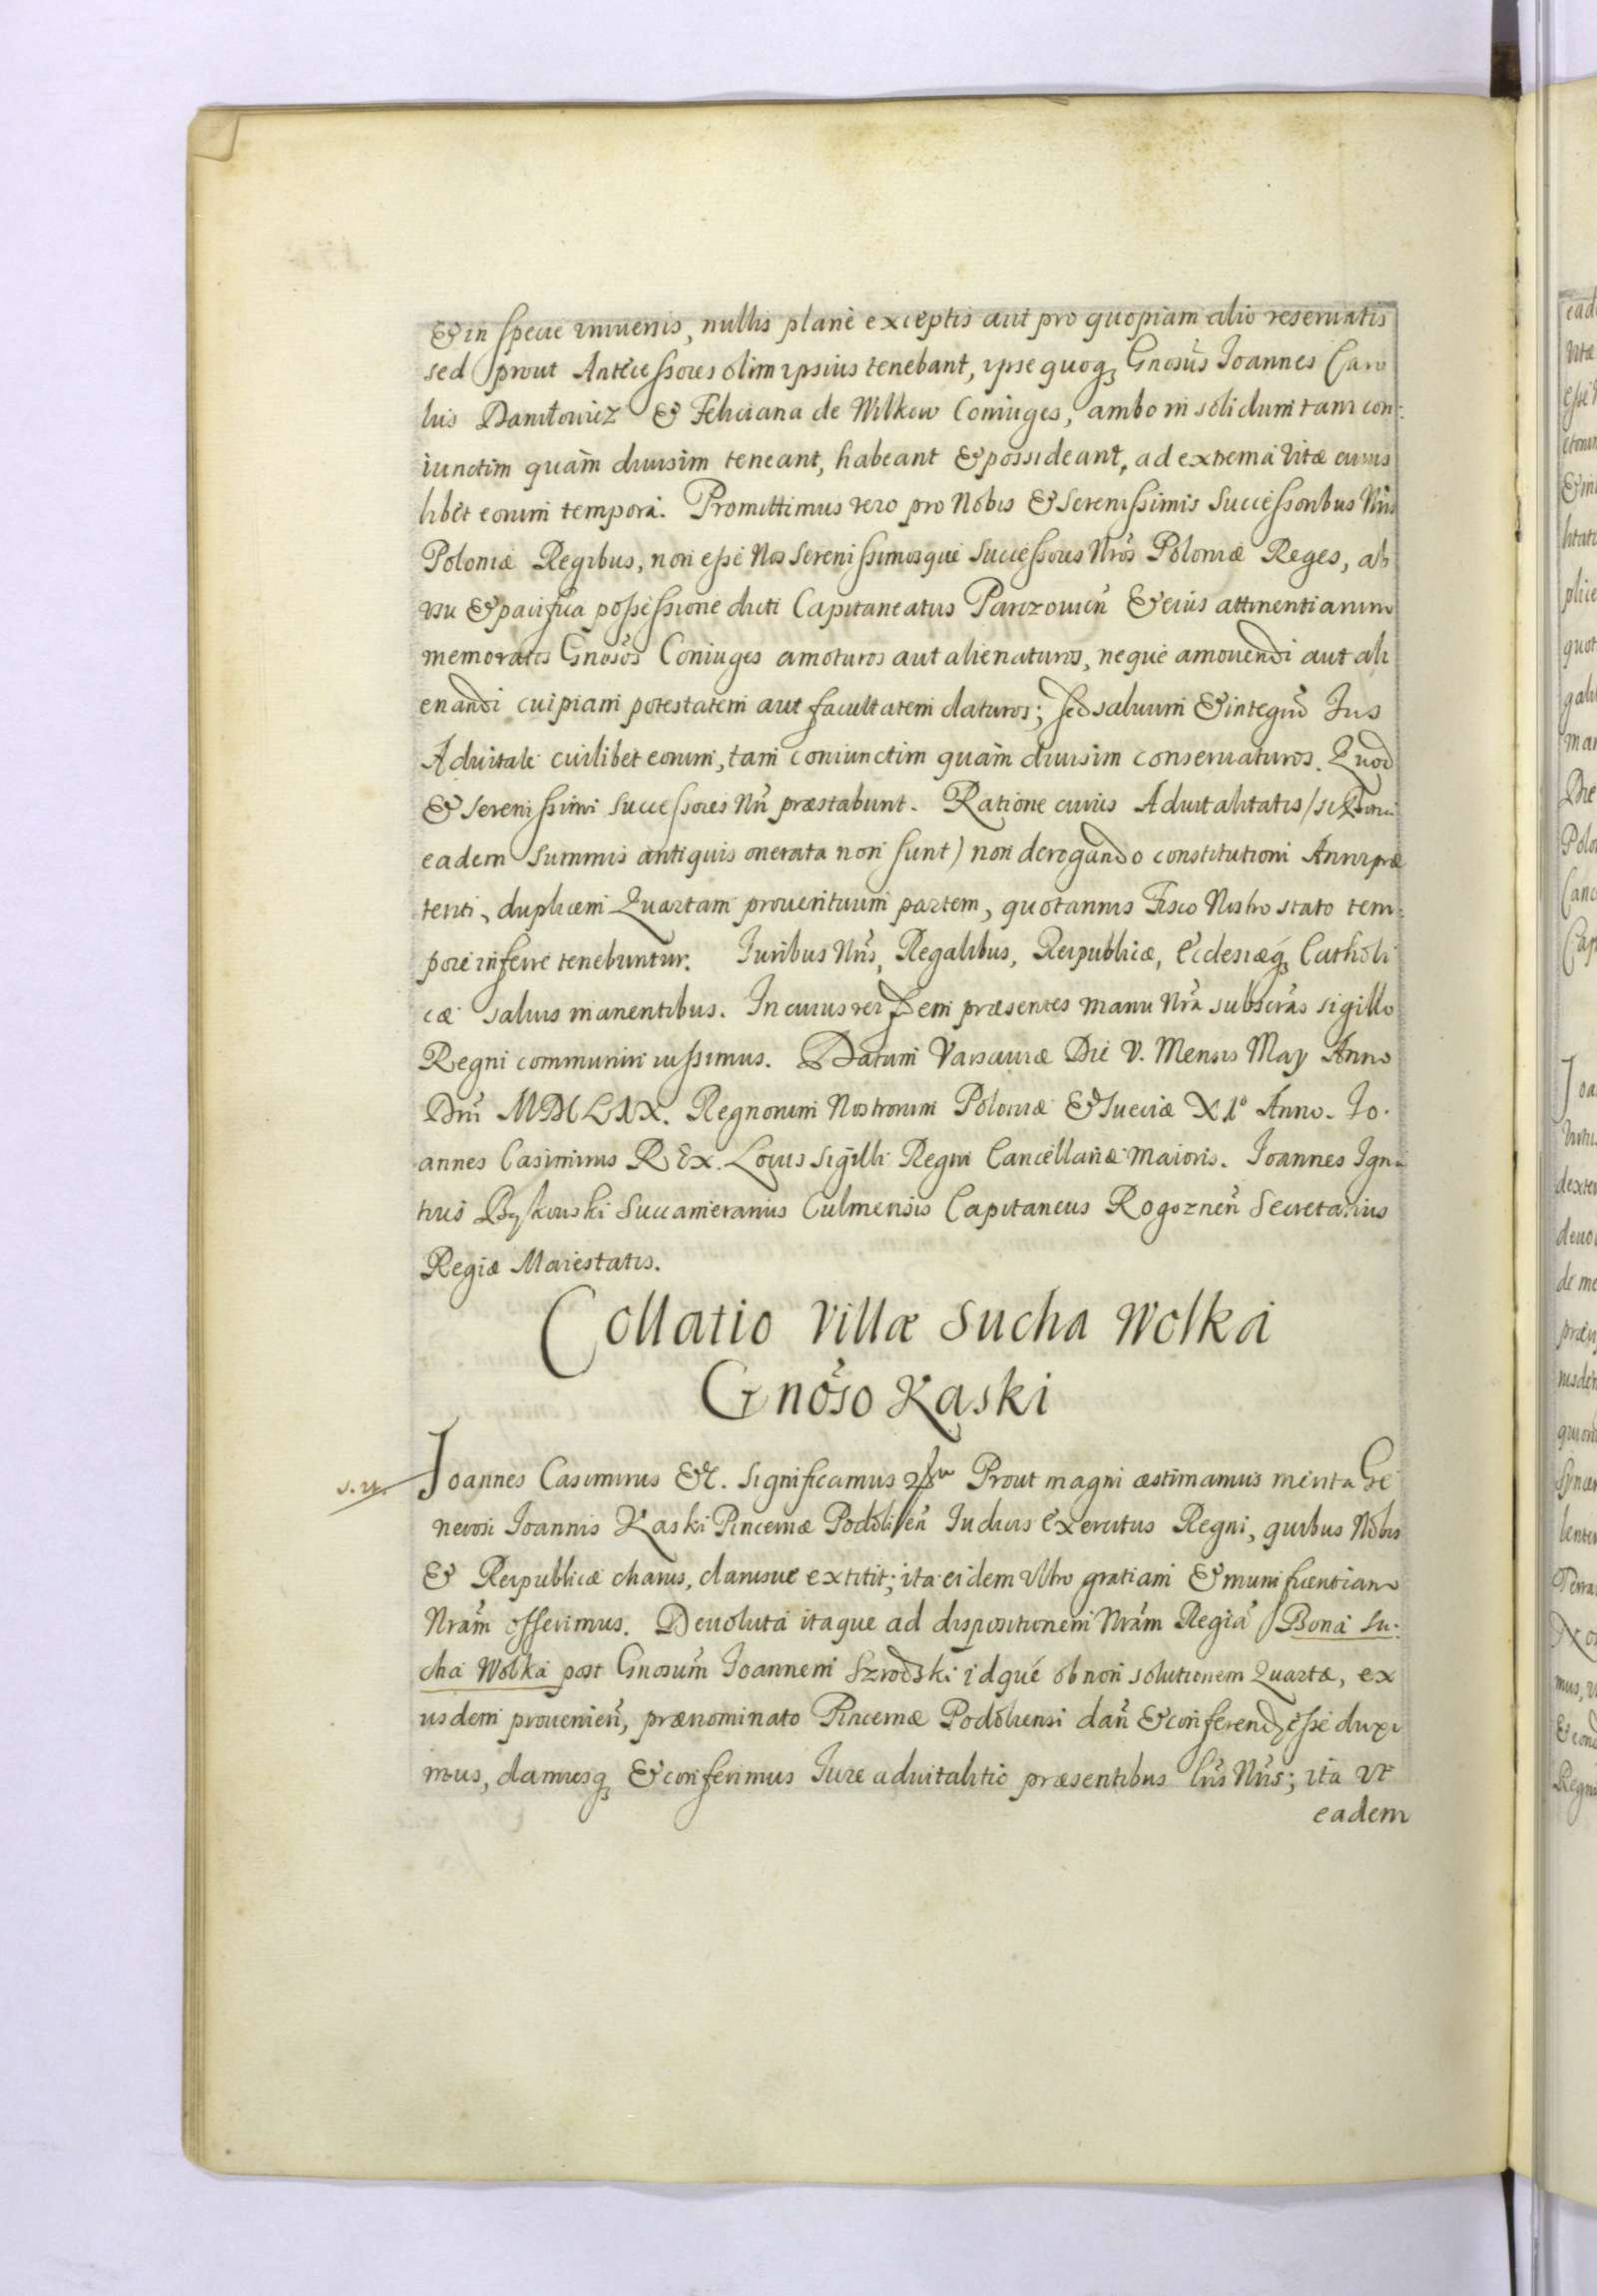 & in specie universis, nullis planè exceptis aut pro quopiam alio reservatis
sed prout Antecessores olim ipsius tenebant, ipse quoq₃ Gnosus Joannes Caro
lus Daniłowicz & Feliciana de Wilkow Coniuges, ambo in solidum tam con:
iunctim quàm divisim teneant, habeant & possideant, ad extrema vitæ cuius
libet eorum tempora. Promittimus vero pro Nobis & Serenissimis Successoribus Nris
Poloniæ Regibus, non esse Nos Serenissimosque Successores Nros Poloniæ Reges, ab
usu & pacifica possessione dicti Capitaneatus Parczouien & eius attinentiarum
memoratos Gnosos Coniuges amoturos aut alienaturos, neque amouendi aut ali
enandi cuipiam potestatem aut facultatem daturos; sed saluum & integrum Jus
Aduitale cuilibet eorum, tam coniunctim quàm diuisim conseruaturos. Quod
& Serenissimi Successores Nri præstabunt. Ratione cuius Aduitalitatis /si bona
eadem Summis antiquis onerata non sunt) non derogando constitutioni Anni præ
teriti, duplicem Quartam prouentuum partem, quotannis Fisco Nostro stato tem:
pore inferre tenebuntur. Juribus Nris, Regalibus, Reipublicæ, Ecclesiæq₃ Catholi
cæ saluis manentibus. In cuius rei fidem præsentes manu Nra subscras sigillo
Regni communiri iussimus. Datum Varsauiæ Die V. Mensis May Anno
Dni MDCLIX. Regnorum Nostrorum Poloniæ & Sueciæ XIº Anno. Jo.
annes Casimirus REX. Locus Sigilli Regni Cancellariæ Maioris. Joannes Igna
tius Bąkowski Succamerarius Culmensis Capitaneus Rogoznen Secretarius
Regiæ Maiestatis.
Collatio Villæ Sucha Wolka
Gnoso Kaski
Joannes Casimirus &c. Significamus Prout magni æstimamus merita Ge
nerosi Joannis Kaski Pincernæ Podolien Iudicis Exercitus Regni, quibus Nobis
& Reipublicæ charus, clarusue extitit; ita eidem ultro gratiam & munificentiam
Nram offerimus. Deuoluta itaque ad dispositionem Nram Regia Bona Su:
cha Wolka post Gnosum Joannem Szrodski idque ob non solutionem Quartæ, ex
iisdem prouenien, prænominato Pincernæ Podoliensi dan & conferend esse duxi
mus, damusq₃ & conferimus Jure aduitalitio præsentibus lris Nris; ita ut
eadem